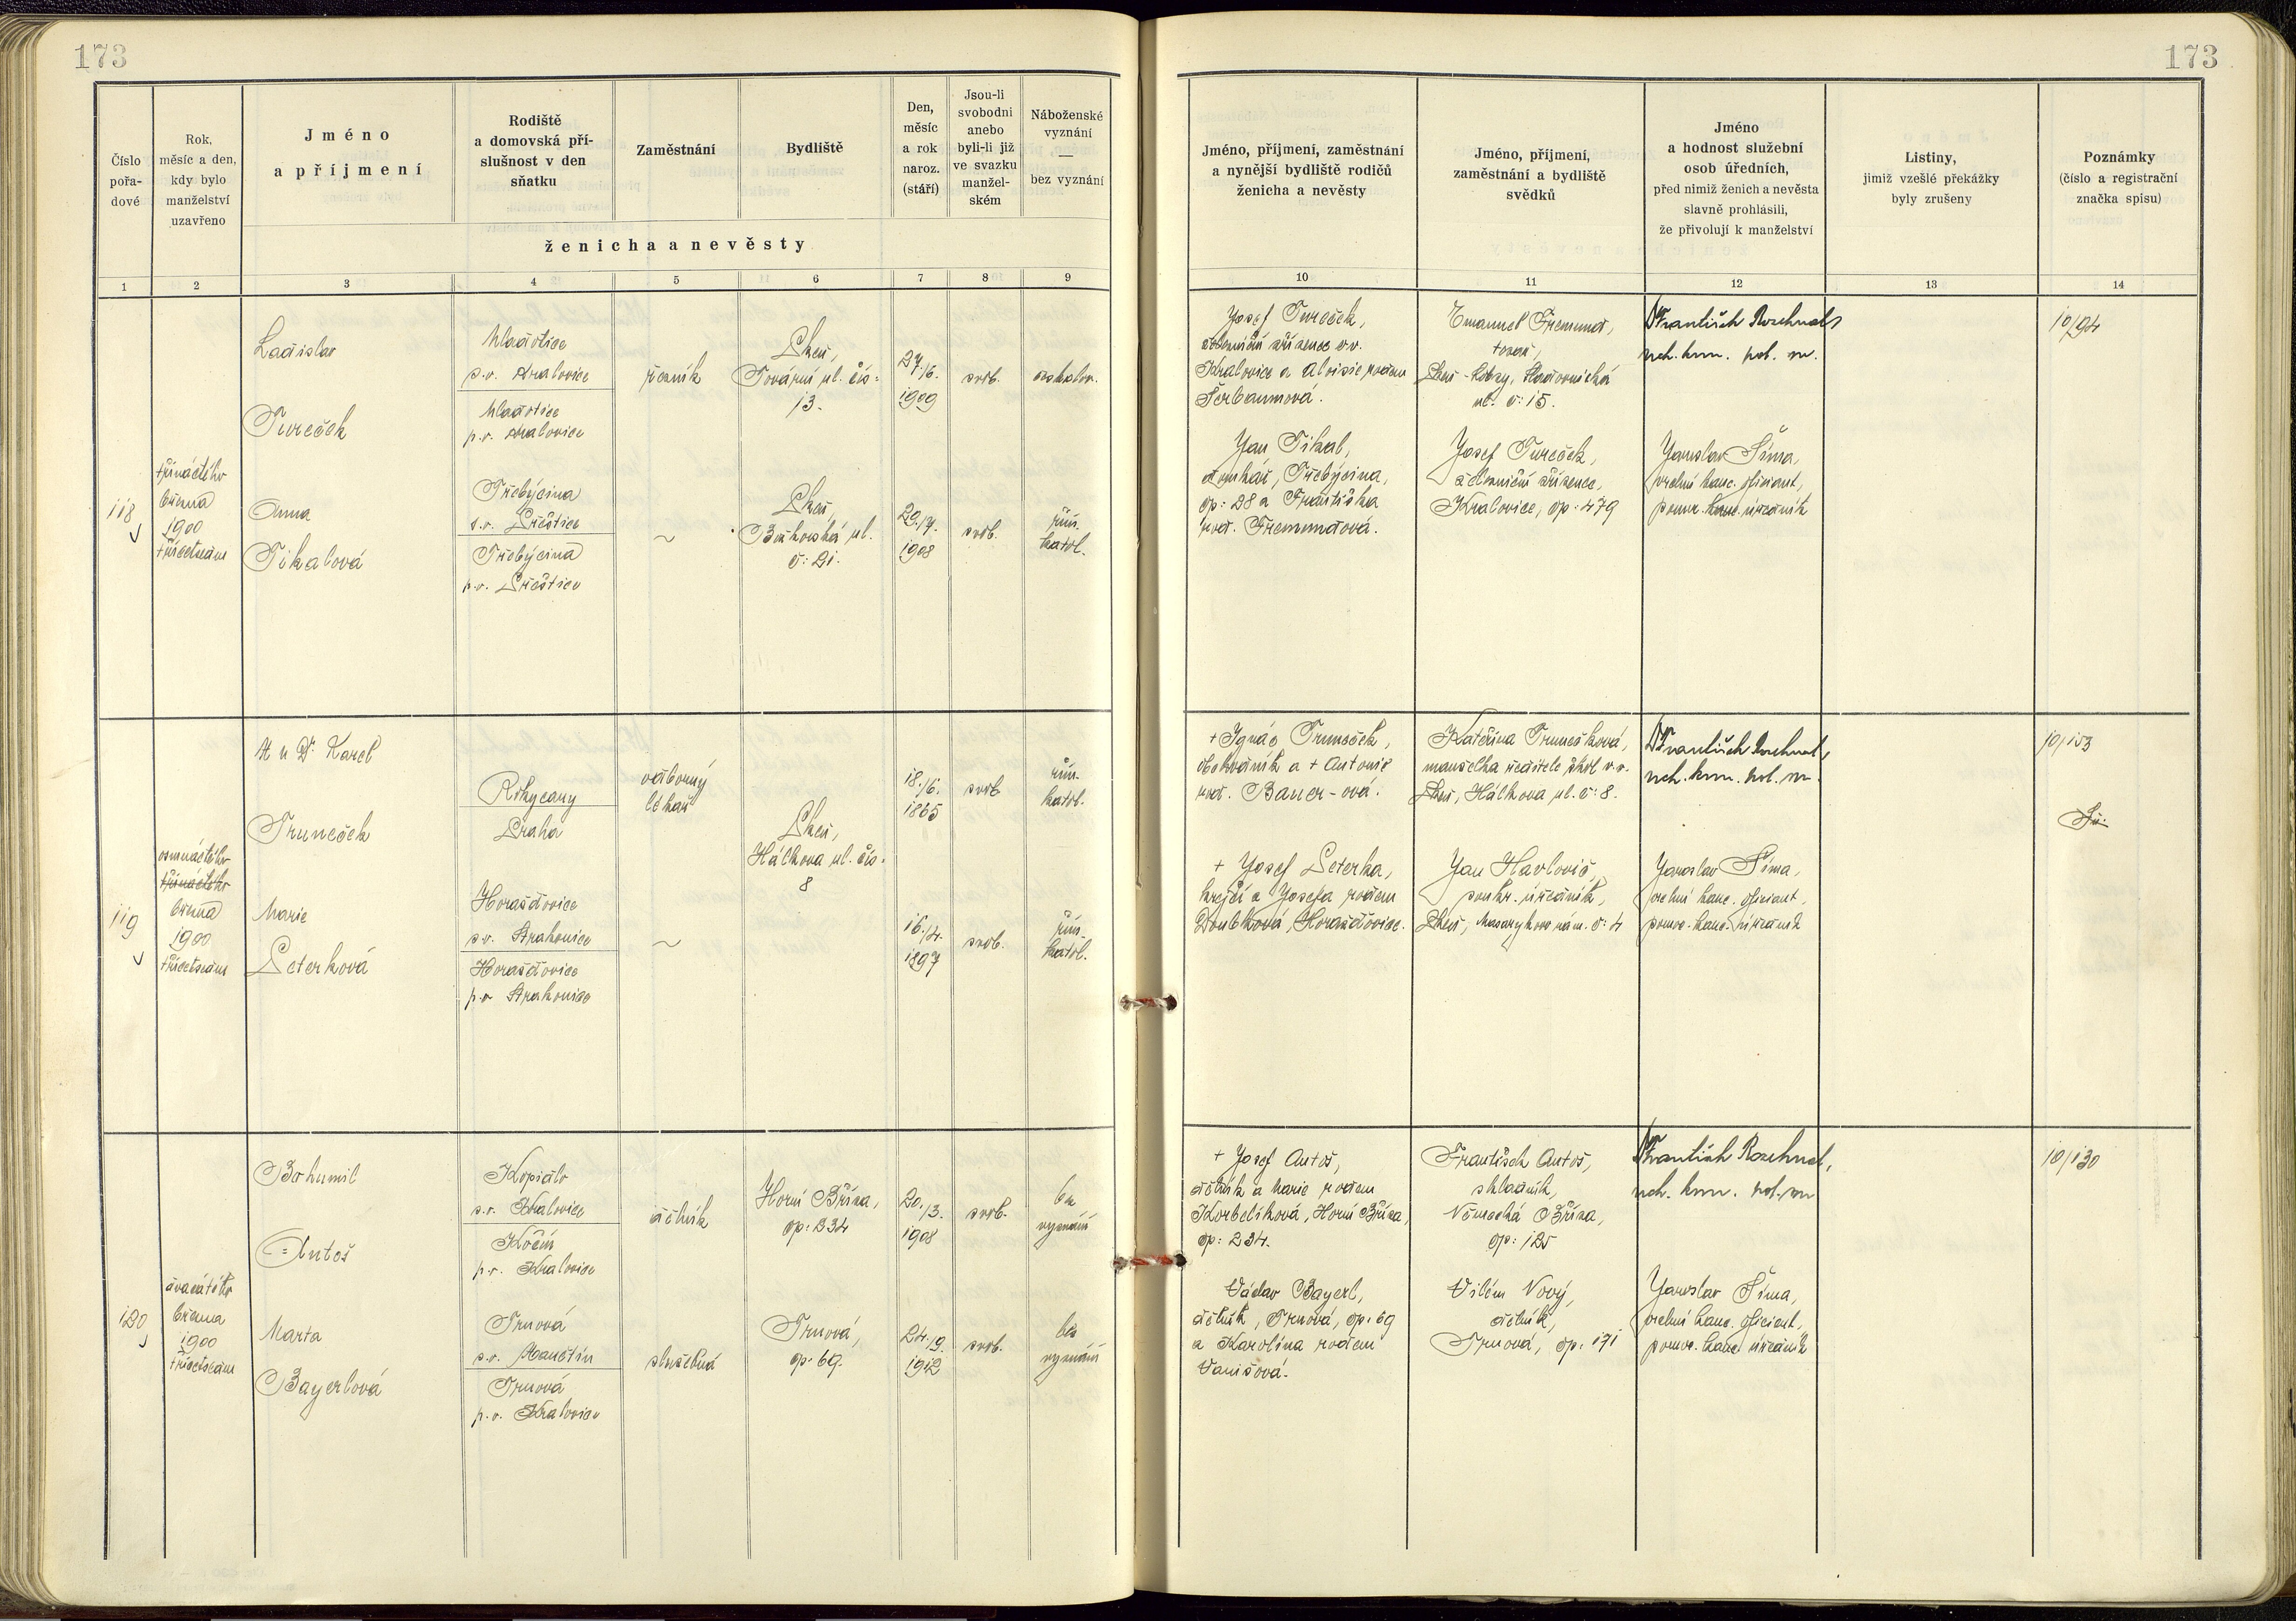 173
173
Číslo
pořa-
dové
Rok,
měsíc a den,
kdy bylo
manželství
uzavřeno
Jméno
a příjmení
Rodiště
a domovská pří-
slušnost v den
sňatku
Zaměstnání
Bydliště
Den,
měsíc
a rok
naroz.
(stáří)
Jsou-li
svobodni
anebo
byli-li již
ve svazku
manžel-
ském
Náboženské
vyznání
—
bez vyznání
ženicha a nevěsty
Jméno, příjmení, zaměstnání
a nynější bydliště rodičů
ženicha a nevěsty
Jméno, příjmení,
zaměstnání a bydliště
svědků
Jméno
a hodnost služební
osob úředních,
před nimiž ženich a nevěsta
slavně prohlásili,
že přivolují k manželství
Listiny,
jimiž vzešlé překážky
byly zrušeny
Poznámky
(číslo a registrační
značka spisu)
1 2 3 4 5 6 7 8 9 10 11 12 13 14
118
třináctého
března
1900
třicetsedm
Ladislav
Tureček
Mladotice
s.o. Kralovice
Mladotice
p.o. Kralovice
řezník
Plzeň,
Tovární ul. čís.
13.
27./6.
1909
svob.
českoslov.
Anna
Tikalová
Třebýcina
s.o. Přeštice
Třebýcina
p.o. Přeštice
~
Plzeň,
ul.
č: 21.
29./7.
1908
svob.
řím.
katol.
Josef Tureček,
železniční zřízenec v.v.
Kralovice a Aloisie rodem
Ferbaumová.
Jan Tikal,
domkář, Třebýcina,
čp: 28 a Františka
rod. Fremundová.
Emanuel Fremund,
Plzeň-Lobzy, Sladovnická
ul. č: 15.
Josef Tureček,
železniční zřízenec,
Kralovice, čp: 479
František
Jaroslav Šíma,
kanc. oficiant,
pomoc. kanc. úředník
10/94
119
osmnáctého
třináctého
března
1900
třicetsedm
MUDr. Karel
Truneček
Rokycany
Praha
odborný
lékař
Plzeň,
Hálkova ul. čís.
8
18./6.
1865
svob
řím.
katol.
Marie
Peterková
Horažďovice
s.o. Strakonice
Horažďovice
p.o Strakonice
~
16./4.
1897
svob.
řím.
katol.
+ Ignác Truneček,
obchodník a + Antonie
rod. Bauer-ová.
+ Josef Peterka,
krejčí a Josefa rodem
Doubková, Horažďovice.
Kateřina Trunečková,
manželka ředitele škol v.v.
Plzeň, Hálkova ul. č: 8.
Jan Havlovic,
soukr. úředník,
Plzeň, Masarykovo nám. č: 4
František
Jaroslav Šíma,
kanc. oficiant,
pomoc. kanc. úředník
10/153
120
dvacátého
března
1900
třicetsedm
Bohumil
Antoš
Kopidlo
s.o. Kralovice
Kočín
p.o. Kralovice
dělník
Horní Bříza,
čp: 234
20./3.
1908
svob.
bez
vyznání
Marta
Bayerlová
Trnová
s.o. Manětín
Trnová
p.o. Kralovice
služebná
Trnová,
čp: 69.
24./9.
1912
svob.
bez
vyznání
+ Josef Antoš,
dělník a Marie rodem
Korbelíková, Horní Bříza,
čp: 234.
Václav Bayerl,
dělník, Trnová, čp: 69
a Karolina rodem
Vanišová.
František Antoš,
skladník,
Německá Bříza,
čp: 125
Vilém Nový,
dělník,
Trnová, čp: 171
František
Jaroslav Šíma,
kanc. oficiant,
pomoc. kanc. úředník
10/130